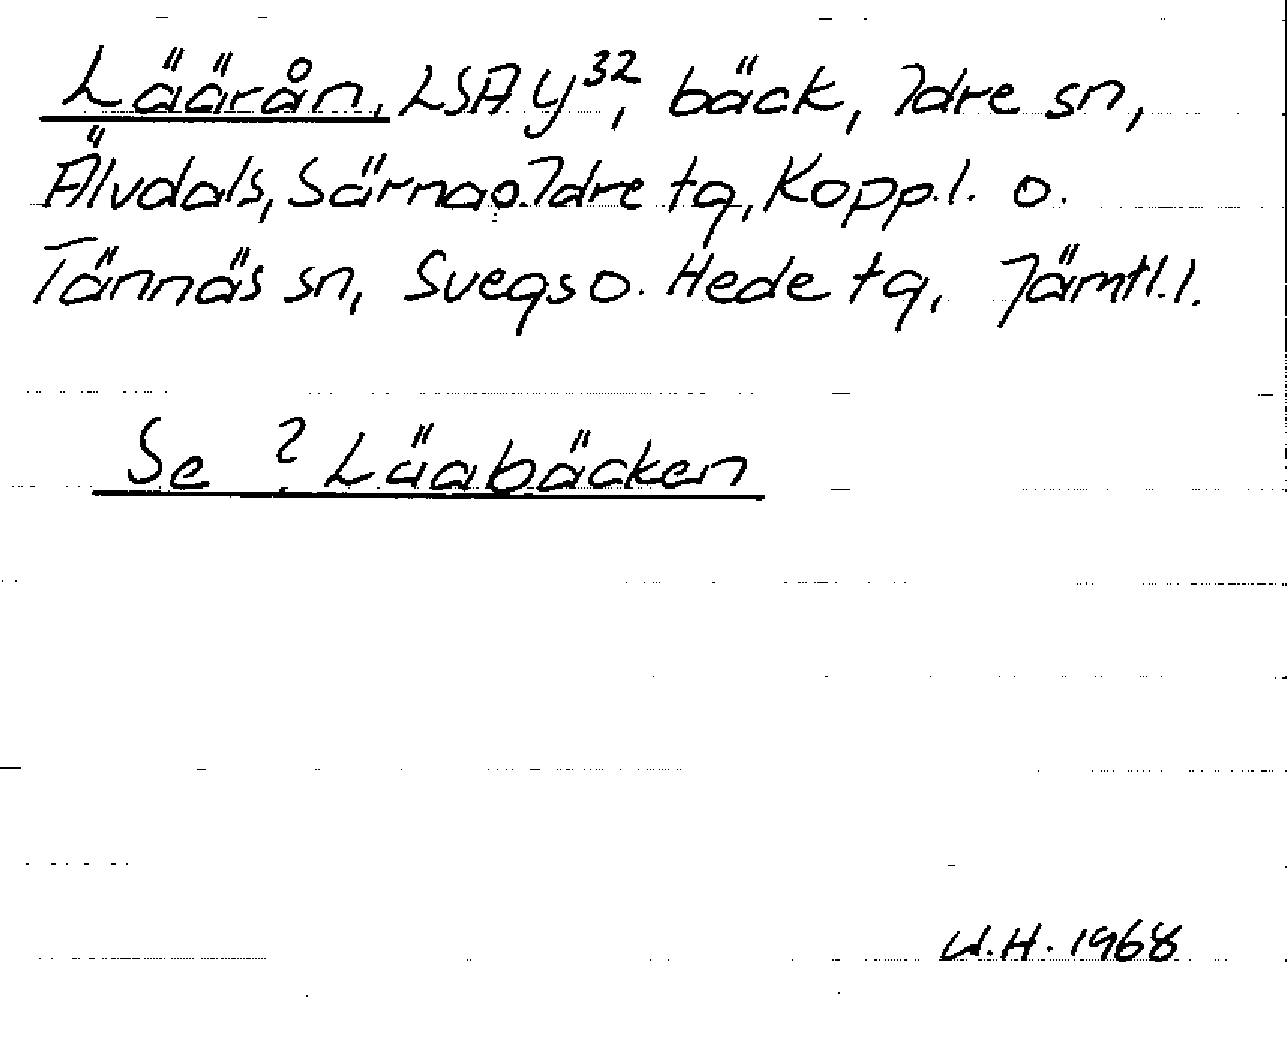 Läärån, LSA Y³², bäck, Idre sn,
Älvdals, Särna o. Idre tg, Kopp.l. o.
Tännäs sn, Svegs o. Hede tg, Jämtl.l.
Se ? Läabäcken
U.H. 1968